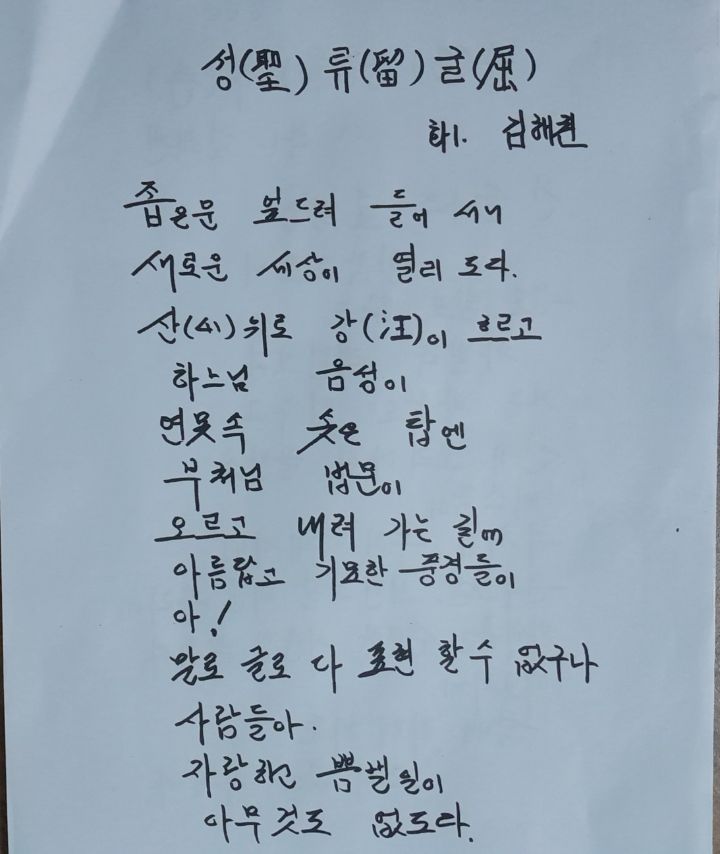 성(聖) 류(留) 굴(屈)
김해천
좁은문 엎드려 들어 서니
새로운 세상이 열리 도다.
산(山)위로 강(江)이 흐르고
하느님 음성이
연못속 솟은 탑엔
부처님 법문이
오르고 내려 가는 길에
아름답고 기묘한 풍경들이
아!
말로 글로 다 표현 할수 없구나
사람들아.
자랑하고 뽐낼일이
아무것도 없도다.